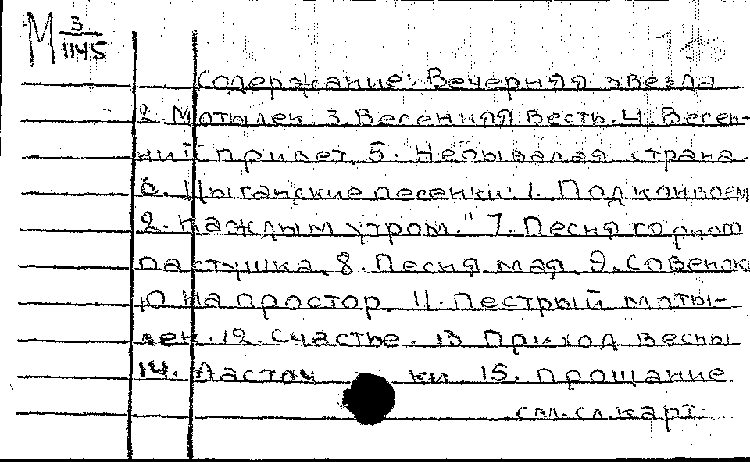 М 3/1145
Содержание: Вечерняя звезда
2. Мотылек. 3. Весенняя весть. 4. Весен-
ний привет. 5. Небывалая страна
6. Цыганские песенки: 1. Под конвоем
2. Каждым утром." 7. Песня горного
пастушка. 8. Песня мая. 9. Совенок
10 На простор. 11. Пестрый моты-
лек. 12. Счастье. 13 Приход весны
14. Ласточ ки 15. Прощание
см. сл. карт.